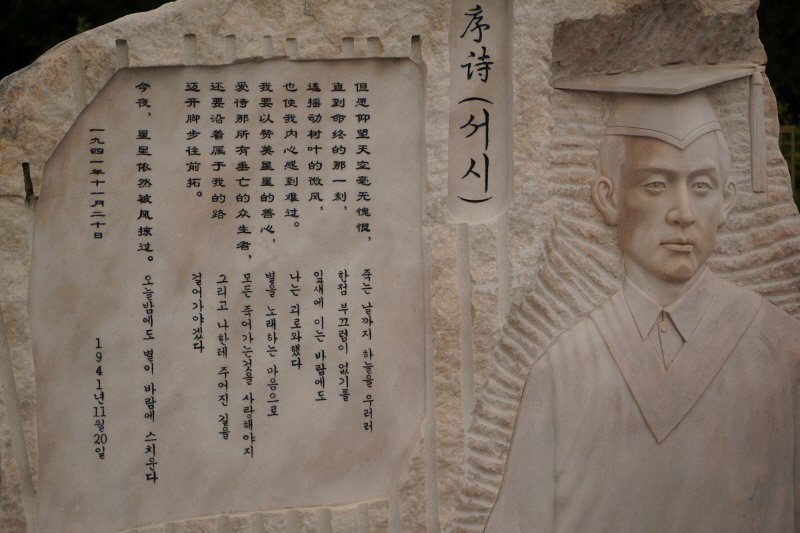 序诗(서시)
但愿仰望天空毫无愧恨，
直到命终的那一刻，
遥摇动树叶的微风，
也使我内心感到难过。
我要以赞美星星的善心，
爱待那所有垂亡的众生者，
还要沿着属于我的路
迈开脚步往前拓。
今夜，星星依然被风掠过。
一九四一年十一月二十日
죽는 날까지 하늘을 우러러
한점 부끄럼이 없기를
잎새에 이는 바람에도
나는 괴로와했다
별을 노래하는 마음으로
모든 죽어가는것을 사랑해야지
그리고 나한테 주어진 길을
걸어가야겠다
오늘밤에도 별이 바람에 스치우다
1941년11월20일